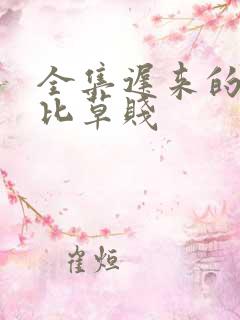 全集遲来的
比草賤
崔烜